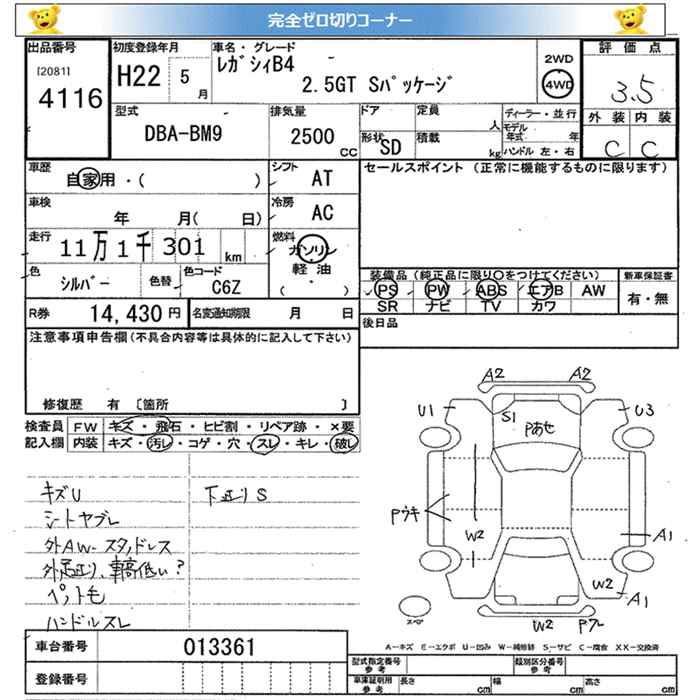 完全ゼロ切りコーナー
出品番号
[2081]
4116
初度登録年月
H22 5月
車名・グレード
レガシィB4
2.5GT Sパッケージ
2WD
4WD
評価点
3.5
外装 内装
C C
型式
DBA-BM9
排気量
2500 CC
ドア
定員
人
形状
SD
積載
kg
ディーラー・並行
モデル年式 年
ハンドル 左・右
車歴
自家用・( )
シフト
AT
セールスポイント (正常に機能するものに限ります)
車検
年 月( 日)
冷房
AC
走行
11万1千301 km
燃料
ガソリン
軽油
( )
色
シルバー
色替
色コード
C6Z
装備品 (純正品に限り○をつけてください)
新車保証書
PS PW ABS エアB AW
有・無
SR ナビ TV カワ
R券
14,430円
名変通知期限 月 日
後日品
注意事項申告欄(不具合内容等は具体的に記入して下さい)
修復歴 有 [箇所 ]
検査員記入欄
FW キズ・飛石・ヒビ割・リペア跡・×要
内装 キズ・汚れ・コゲ・穴・スレ・キレ・破れ
キズU
下廻りS
シートヤブレ
外AW-スタッドレス
外足廻り、車高低い?
ペット毛
ハンドルスレ
A2 A2
U1 U3
S1
Pあせ
Pウキ
W2
A1
W2
A1
W2
スペア
A-キズ E-エクボ U-凹み W-補修跡 S-サビ C-腐食 XX-交換済
車台番号
013361
登録番号
型式指定番号 参考
類別区分番号 参考
車庫証明用 参考
長さ cm
幅 cm
高さ cm